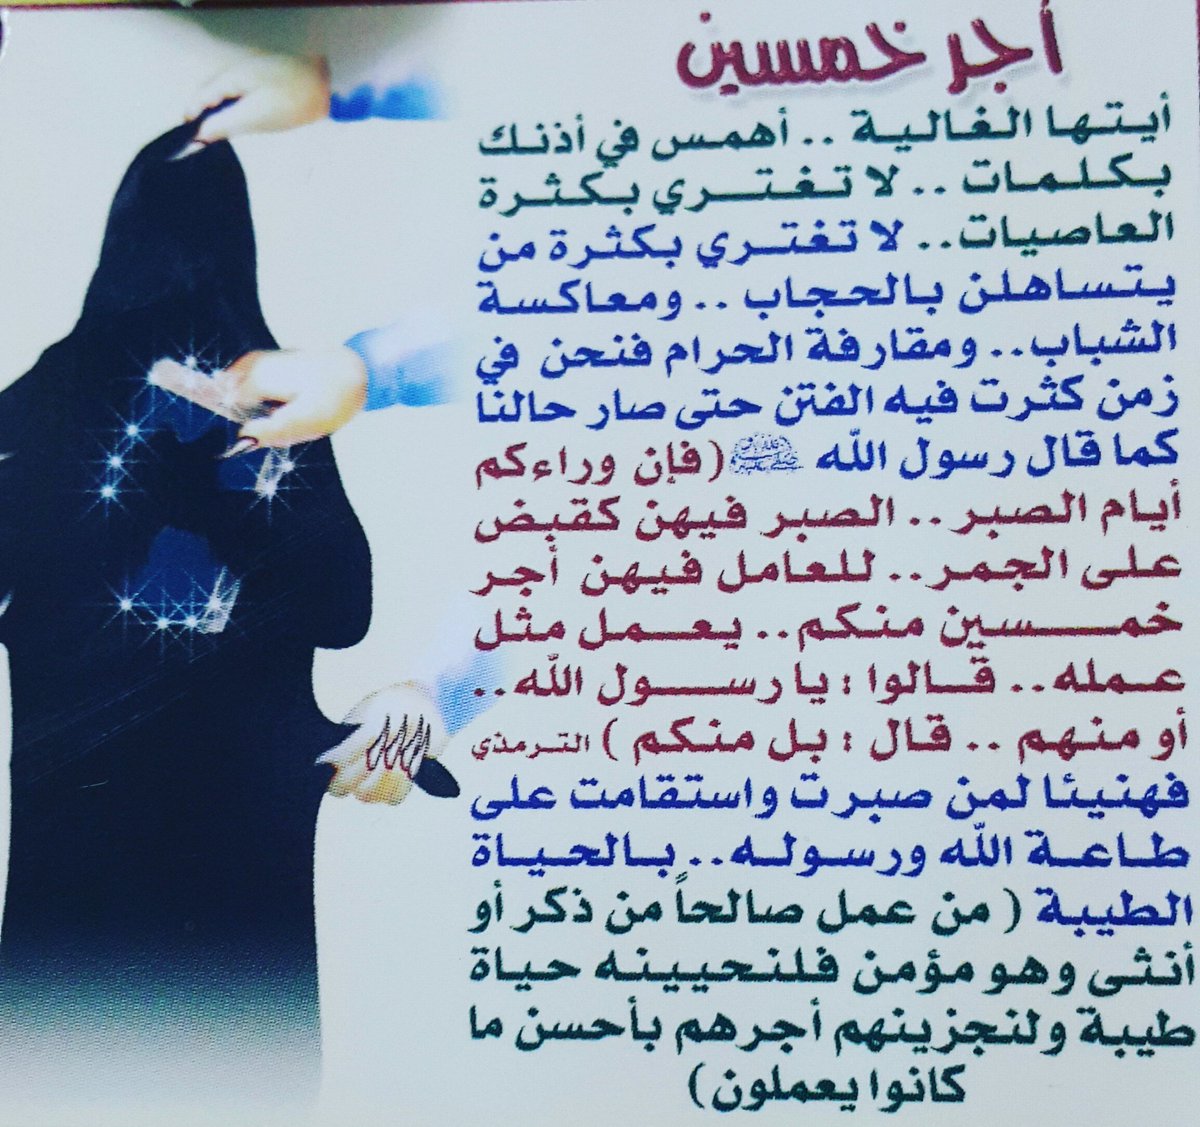 أجر خمسين
أيتها الغالية .. أهمس في أذنك
بكلمات .. لا تغتري بكثرة
العاصيات.. لا تغتري بكثرة من
يتساهلن بالحجاب .. ومعاكسة
الشباب.. ومقارفة الحرام فنحن في
زمن كثرت فيه الفتن حتى صار حالنا
كما قال رسول الله ﷺ (فإن وراءكم
أيام الصبر .. الصبر فيهن كقبض
على الجمر.. للعامل فيهن أجر
خمسين منكم.. يعمل مثل
عمله.. قالوا : يا رسول الله..
أو منهم .. قال : بل منكم ) الترمذي
فهنيئا لمن صبرت واستقامت على
طاعة الله ورسوله.. بالحياة
الطيبة ( من عمل صالحاً من ذكر أو
أنثى وهو مؤمن فلنحيينه حياة
طيبة ولنجزينهم أجرهم بأحسن ما
كانوا يعملون)